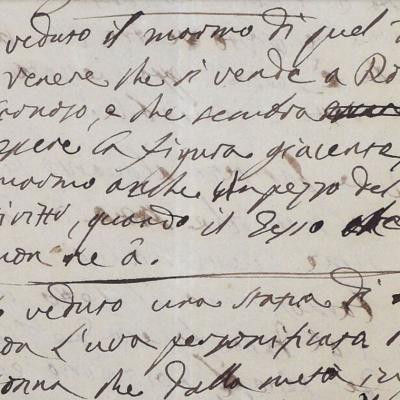 veduto il marmo di quel
venere che si vende a Ro
e che sembra
la figura giacente,
marmo anche un pezzo del
ritto, quando il Gesso
non ne à.
veduto una statua di
l'uva personificata
donna che dalla metà in